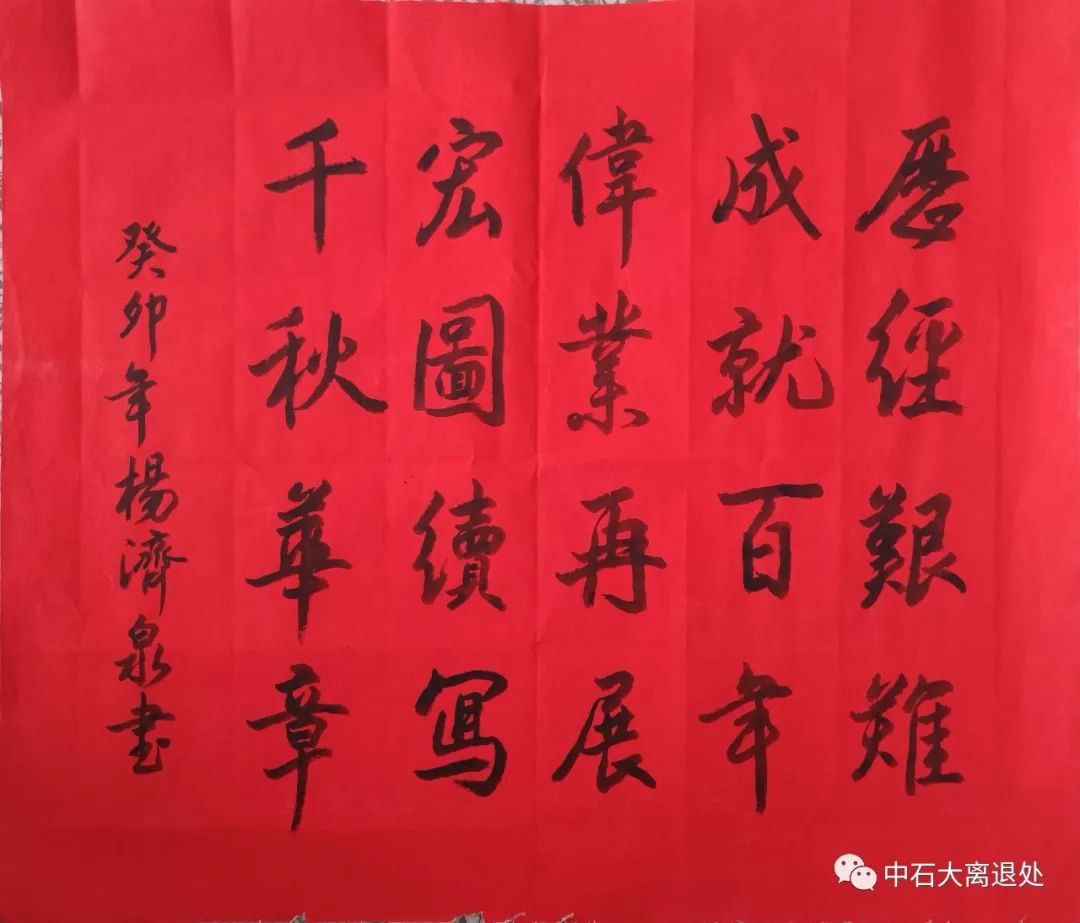 歷經艱難
成就百年
偉業再展
宏圖續寫
千秋華章
癸卯年楊濟泉書
中石大离退处